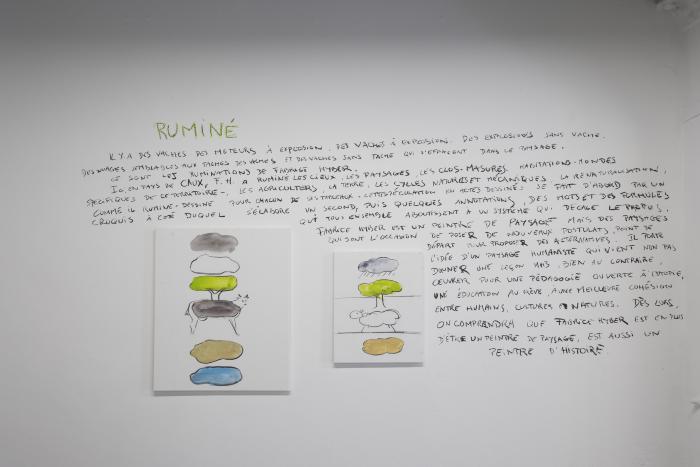 RUMINÉ
IL Y A DES VACHES DES MOTEURS À EXPLOSION, DES VACHES À EXPLOSION. DES EXPLOSIONS SANS VACHE.
DES VACHES SEMBLABLES AUX TACHES DES VACHES ET DES VACHES SANS TACHE QUI S'EFFACENT DANS LE PAYSAGE.
CE SONT LES RUMINATIONS DE FABRICE HYBER.
ICI, EN PAYS DE CAUX, F. H. A RUMINÉ LES LIEUX, LES PAYSAGES, LES CLOS-MASURES. HABITATIONS-MONDES
SPÉCIFIQUES DE CE TERRITOIRE-, LES AGRICULTEURS, LA TERRE, LES CYCLES NATURELS ET MÉCANIQUES, LA RENATURALISATION,
COMME IL RUMINE-DESSINE POUR CHACUN DE SES TABLEAUX. CETTE SPÉCULATION EN ACTES DESSINÉS SE FAIT D'ABORD PAR UN
CROQUIS À CÔTÉ DUQUEL S'ÉLABORE UN SECOND, PUIS QUELQUES ANNOTATIONS, DES MOTS ET DES FORMULES
QUI TOUS ENSEMBLE ABOUTISSENT A UN SYSTÈME QUI DÉGAGE LE
FABRICE HYBER EST UN PEINTRE DE PAYSAGE MAIS DES PAYSAGES
QUI SONT L'OCCASION DE POSER DE NOUVEAUX POSTULATS, POINT DE
DÉPART POUR PROPOSER DES ALTERNATIVES. IL PORTE
L'IDÉE D'UN PAYSAGE HUMANISTE QUI VIENT NON PAS
DONNER UNE LEÇON MAIS, BIEN AU CONTRAIRE,
ŒUVRER POUR UNE PÉDAGOGIE OUVERTE À L'UTOPIE,
UNE ÉDUCATION AU RÊVE, À UNE MEILLEURE COHÉSION
ENTRE HUMAINS, CULTURES & NATURES. DÈS LORS,
ON COMPRENDRA QUE FABRICE HYBER EST EN PLUS
D'ÊTRE UN PEINTRE DE PAYSAGE, EST AUSSI UN
PEINTRE D'HISTOIRE.